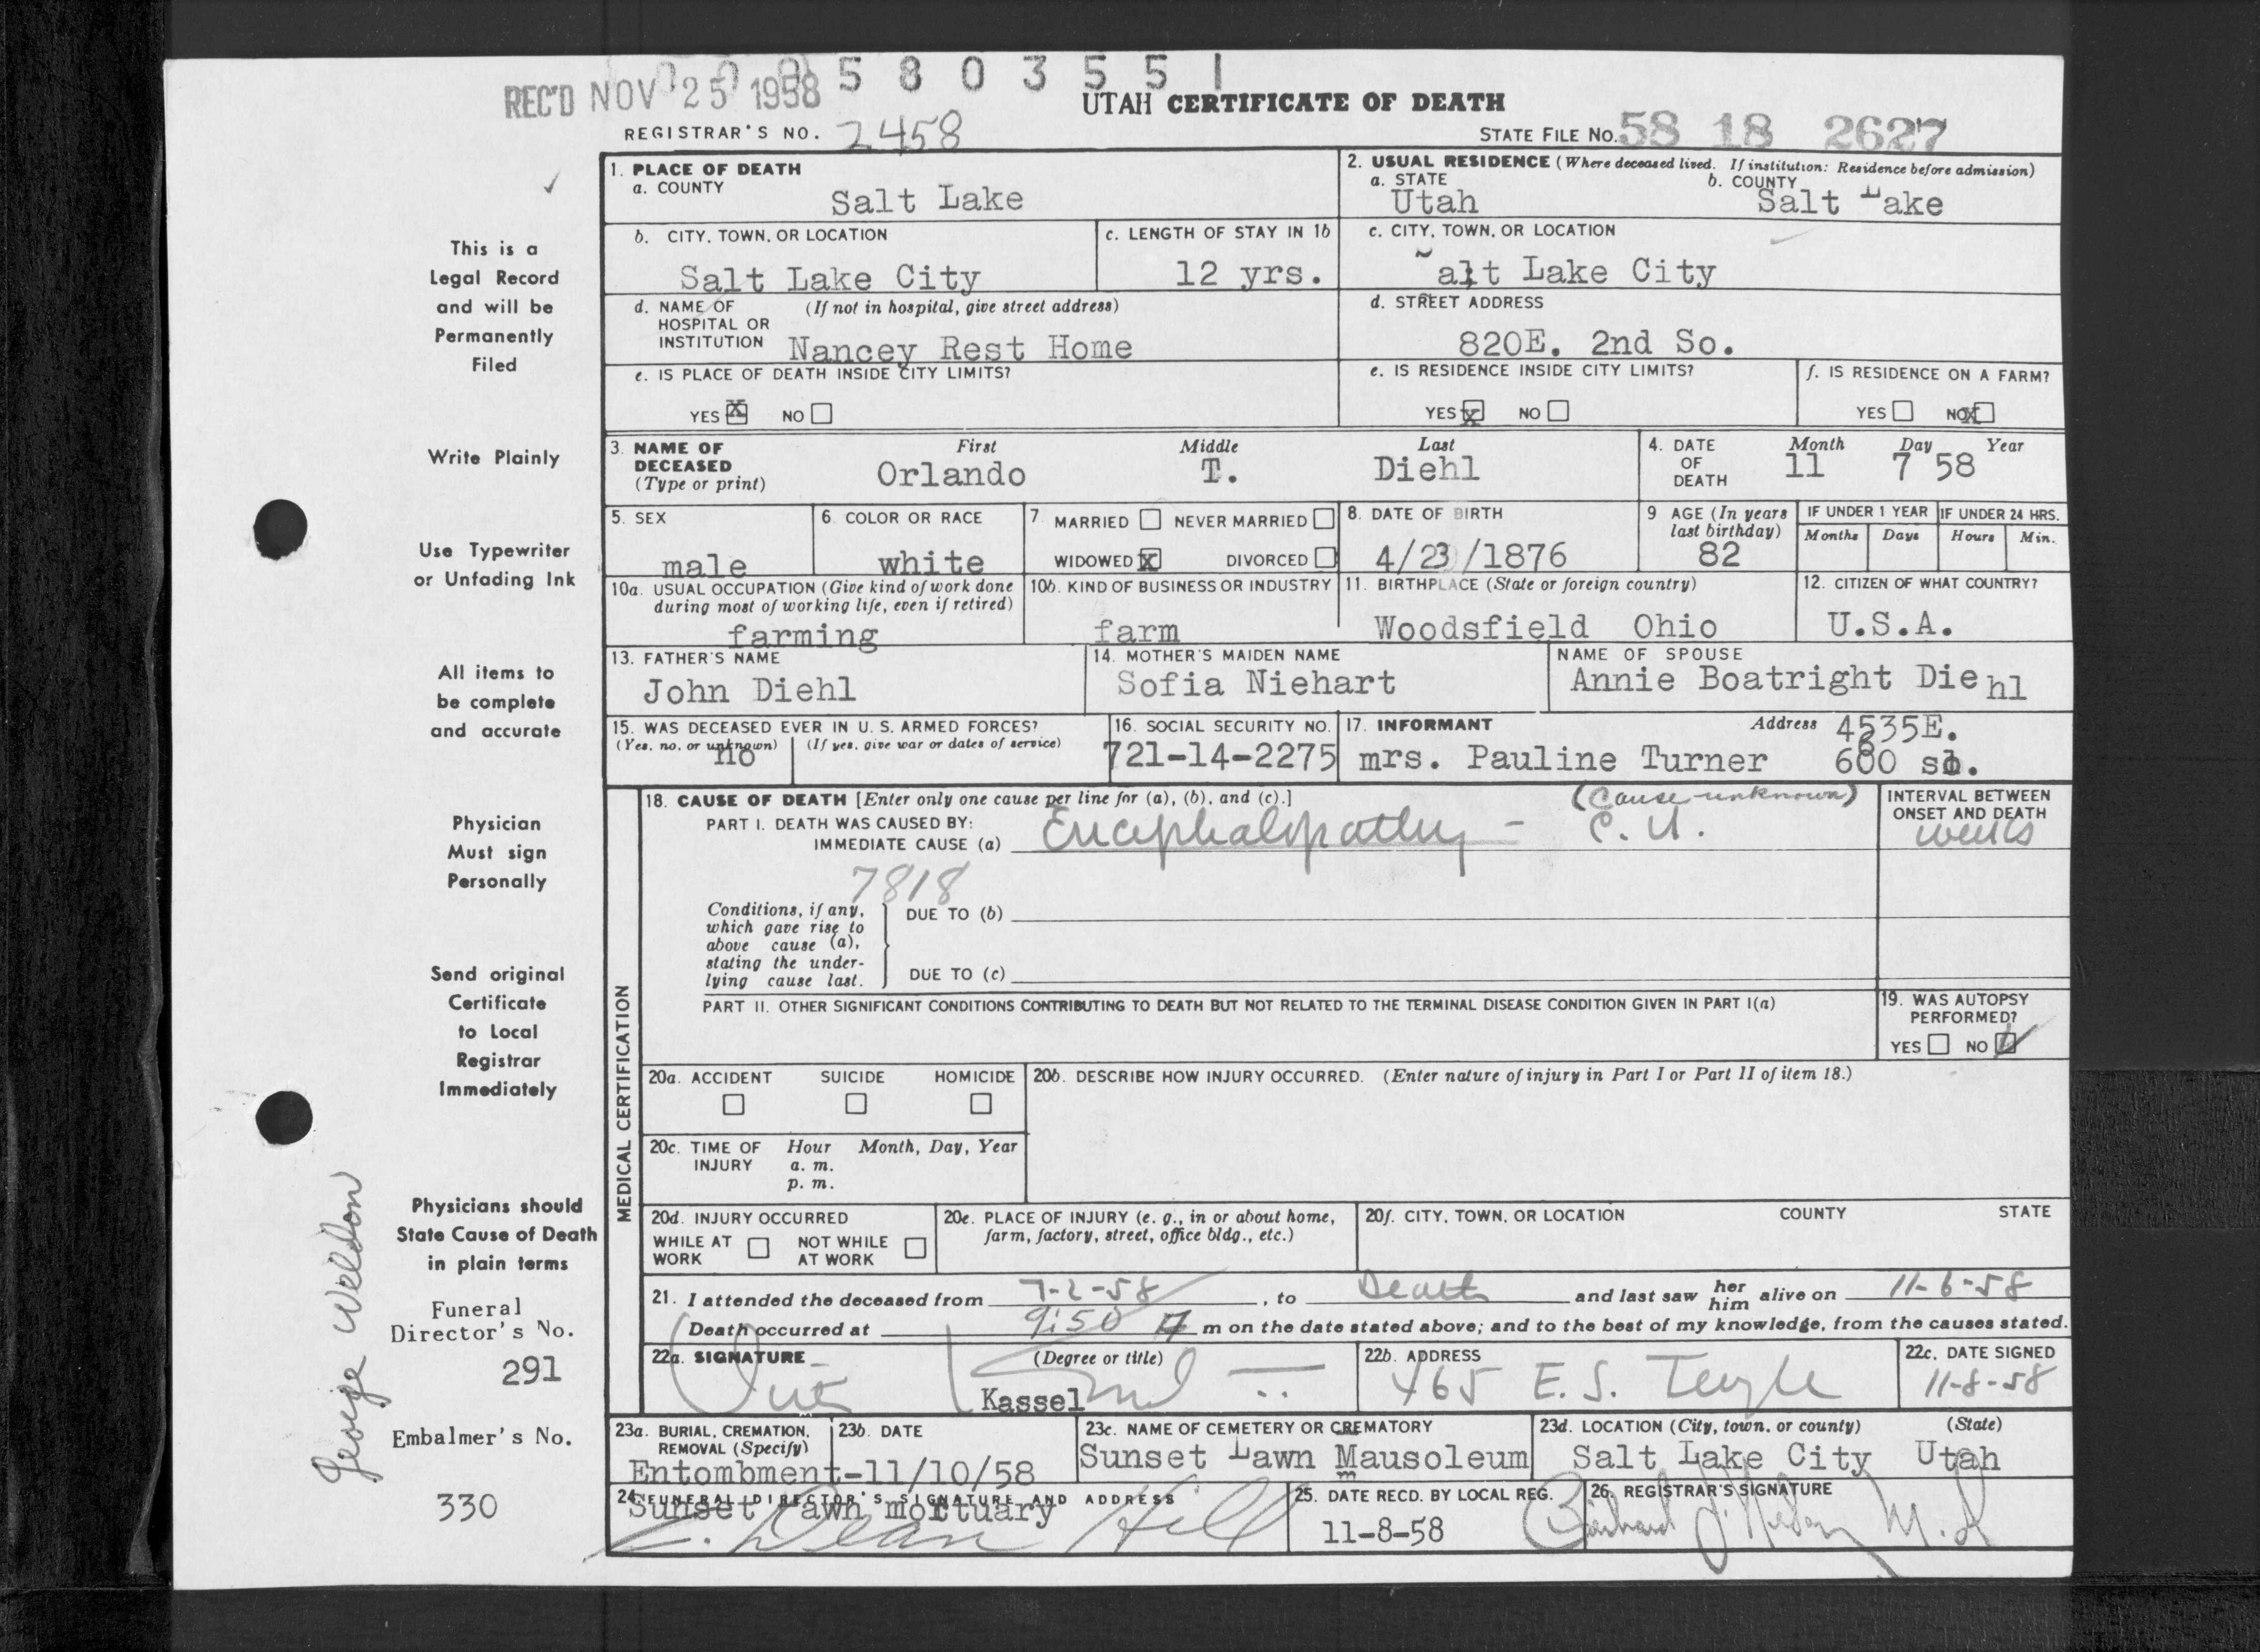 00 0 5 8 0 3 5 5 1
REC'D NOV 25 1958
UTAH CERTIFICATE OF DEATH
REGISTRAR'S NO. 2458
STATE FILE NO. 58 18 2627
1. PLACE OF DEATH
a. COUNTY
Salt Lake
2. USUAL RESIDENCE (Where deceased lived. If institution: Residence before admission)
a. STATE b. COUNTY
Utah Salt Lake
b. CITY, TOWN, OR LOCATION
Salt Lake City
c. LENGTH OF STAY IN 1b
12 yrs.
c. CITY, TOWN, OR LOCATION
Salt Lake City
d. NAME OF (If not in hospital, give street address)
HOSPITAL OR
INSTITUTION Nancey Rest Home
d. STREET ADDRESS
820E. 2nd So.
e. IS PLACE OF DEATH INSIDE CITY LIMITS?
YES X NO
e. IS RESIDENCE INSIDE CITY LIMITS?
YES X NO
f. IS RESIDENCE ON A FARM?
YES NO X
3. NAME OF DECEASED (Type or print)
First Middle Last
Orlando T. Diehl
4. DATE OF DEATH
Month Day Year
11 7 58
5. SEX
male
6. COLOR OR RACE
white
7. MARRIED NEVER MARRIED
WIDOWED X DIVORCED
8. DATE OF BIRTH
4/23/1876
9 AGE (In years last birthday)
82
IF UNDER 1 YEAR
Months Days
IF UNDER 24 HRS.
Hours Min.
10a. USUAL OCCUPATION (Give kind of work done
during most of working life, even if retired)
farming
10b. KIND OF BUSINESS OR INDUSTRY
farm
11. BIRTHPLACE (State or foreign country)
Woodsfield Ohio
12. CITIZEN OF WHAT COUNTRY?
U.S.A.
13. FATHER'S NAME
John Diehl
14. MOTHER'S MAIDEN NAME
Sofia Niehart
NAME OF SPOUSE
Annie Boatright Diehl
15. WAS DECEASED EVER IN U. S. ARMED FORCES?
(Yes, no, or unknown) (If yes, give war or dates of service)
no
16. SOCIAL SECURITY NO.
721-14-2275
17. INFORMANT Address
mrs. Pauline Turner
4535E.
600 so.
18. CAUSE OF DEATH [Enter only one cause per line for (a), (b), and (c).]
PART I. DEATH WAS CAUSED BY:
(Cause unknown)
IMMEDIATE CAUSE (a) Encephalopathy - C. U.
INTERVAL BETWEEN
ONSET AND DEATH
weeks
7818
Conditions, if any,
which gave rise to
above cause (a),
stating the under-
lying cause last.
DUE TO (b)
DUE TO (c)
PART II. OTHER SIGNIFICANT CONDITIONS CONTRIBUTING TO DEATH BUT NOT RELATED TO THE TERMINAL DISEASE CONDITION GIVEN IN PART I(a)
19. WAS AUTOPSY
PERFORMED?
YES NO
MEDICAL CERTIFICATION
20a. ACCIDENT SUICIDE HOMICIDE
20b. DESCRIBE HOW INJURY OCCURRED. (Enter nature of injury in Part I or Part II of item 18.)
20c. TIME OF INJURY
Hour Month, Day, Year
a. m.
p. m.
20d. INJURY OCCURRED
WHILE AT WORK NOT WHILE AT WORK
20e. PLACE OF INJURY (e. g., in or about home,
farm, factory, street, office bldg., etc.)
20f. CITY, TOWN, OR LOCATION COUNTY STATE
21. I attended the deceased from 7-2-58, to Death and last saw her him alive on 11-6-58
Death occurred at 9:50 m on the date stated above; and to the best of my knowledge, from the causes stated.
22a. SIGNATURE (Degree or title)
Kassel
22b. ADDRESS
465 E. S. Temple
22c. DATE SIGNED
11-8-58
23a. BURIAL, CREMATION,
REMOVAL (Specify)
Entombment-11/10/58
23b. DATE
23c. NAME OF CEMETERY OR CREMATORY
Sunset Lawn Mausoleum
23d. LOCATION (City, town, or county) (State)
Salt Lake City Utah
24. FUNERAL DIRECTOR'S SIGNATURE AND ADDRESS
Sunset Lawn mortuary
E. Dean Hill
25. DATE RECD. BY LOCAL REG.
11-8-58
26. REGISTRAR'S SIGNATURE
M.D
This is a
Legal Record
and will be
Permanently
Filed
Write Plainly
Use Typewriter
or Unfading Ink
All items to
be complete
and accurate
Physician
Must sign
Personally
Send original
Certificate
to Local
Registrar
Immediately
Physicians should
State Cause of Death
in plain terms
Funeral
Director's No.
291
Embalmer's No.
330
George Weldon